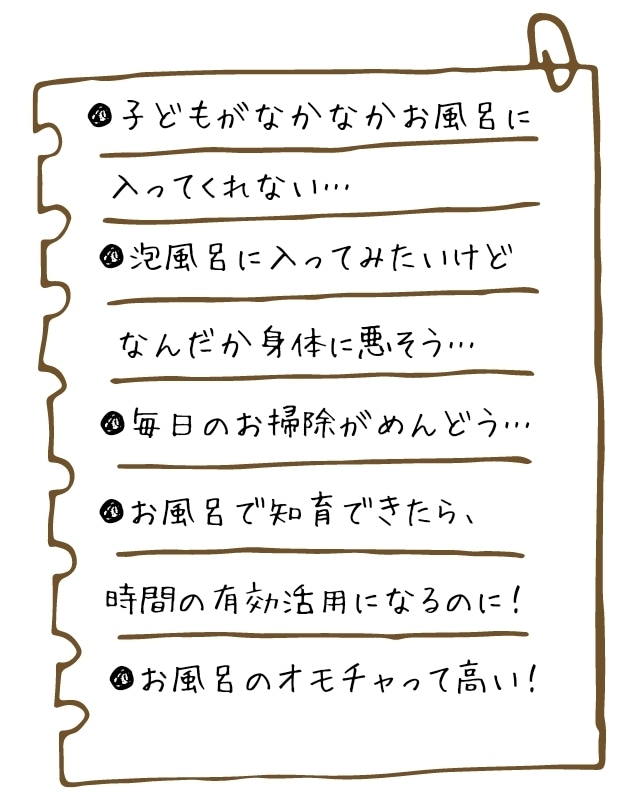 ●子どもがなかなかお風呂に
入ってくれない…
●泡風呂に入ってみたいけど
なんだか身体に悪そう…
●毎日のお掃除がめんどう…
●お風呂で知育できたら、
時間の有効活用になるのに！
●お風呂のオモチャって高い！